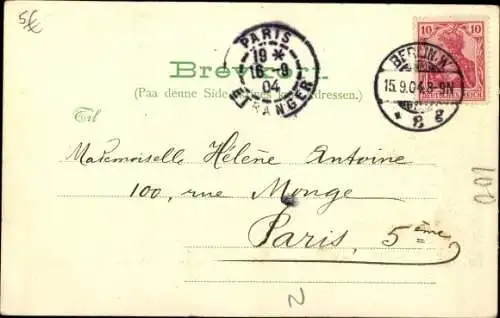 5f
PARIS
19 *
16 -9
04
ETRANGER
10 10
BERLIN.W.
15.9.04.8-9N
* 8 g
Brevkort.
(Paa denne Side skrives kun Adressen.)
Til
Mademoiselle Hélène Antoine
100, rue Monge
Paris, 5ème
100
N